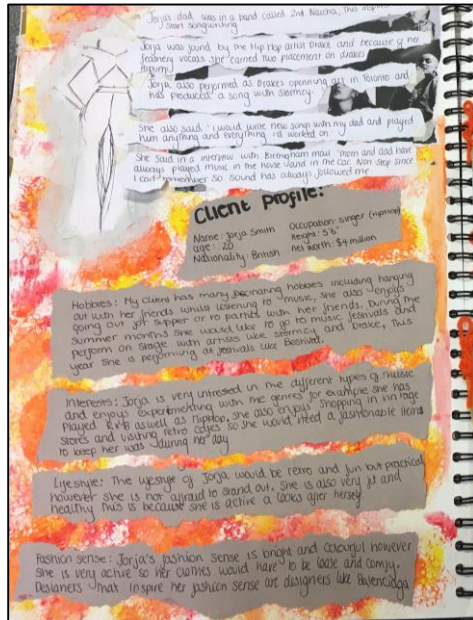 Jorja's dad was in a band called 2nd Naicha, this
start songwriting
Jorja was found by the Hip Hop artist Drake and because of her
feathery vocals she earned two placement on drakes
album
Jorja also performed as Drakes openning act in Toronto and
has produced a song with stormzy.
She also said 'I would write new songs with my dad and played
him anything and everything i'd worked on.'
She said in a interview with Birmingham mail 'mom and dad have
always played music in the house and in the car. Non stop since
I can't remember so sound has always followed me
Client Profile:
Name: Jorja Smith
age: 20
Nationality: British
Occupation: singer (hiphop)
height: 5'6"
net worth: $4 million
Hobbies: My client has many hobbies including hanging
out with her friends whilst listening to music, she also enjoys
going out for supper or to parties with her friends. During the
summer months she would like to go to music festivals and
perform on stage with artists like stormzy and Drake, this
year she is performing at festivals like Bestival.
Interests: Jorja is very intrested in the different types of music
and enjoys experimenting with the genres for example she has
Played R+B aswell as HipHop, she also enjoys shopping in vintage
stores and visiting retro cafes so she would need a fashionable items
to keep her warm during her day
Lifestyle: The lifestyle of Jorja would be retro and fun but practical
however she is not afraid to stand out. She is also very fit and
healthy this is because she is active a looks after herself
Fashion sense: Jorja's fashion sense is bright and colourful however
she is very active so her clothes would have to be loose and comfy.
Designers that inspire her fashion sense are designers like Balenciaga